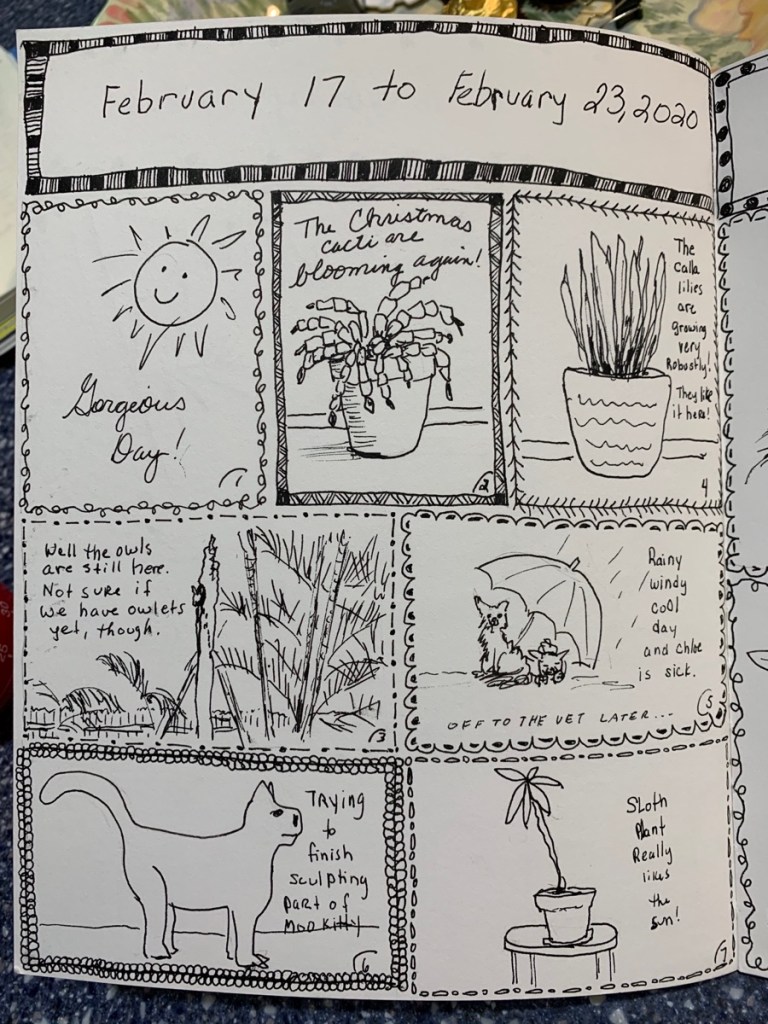 February 17 to February 23, 2020
Gorgeous
Day!
1
The Christmas
cacti are
blooming again!
2
The
Calla
lilies
are
growing
very
Robostly!
They like
it here!
4
Well the owls
are still here.
Not sure if
we have owlets
yet, though.
3
Rainy
windy
cool
day
and Chloe
is sick.
OFF TO THE VET LATER...
5
TRying
to
finish
sculpting
part of
MOD Kitty
6
Sloth
Plant
Really
likes
the
sun!
7